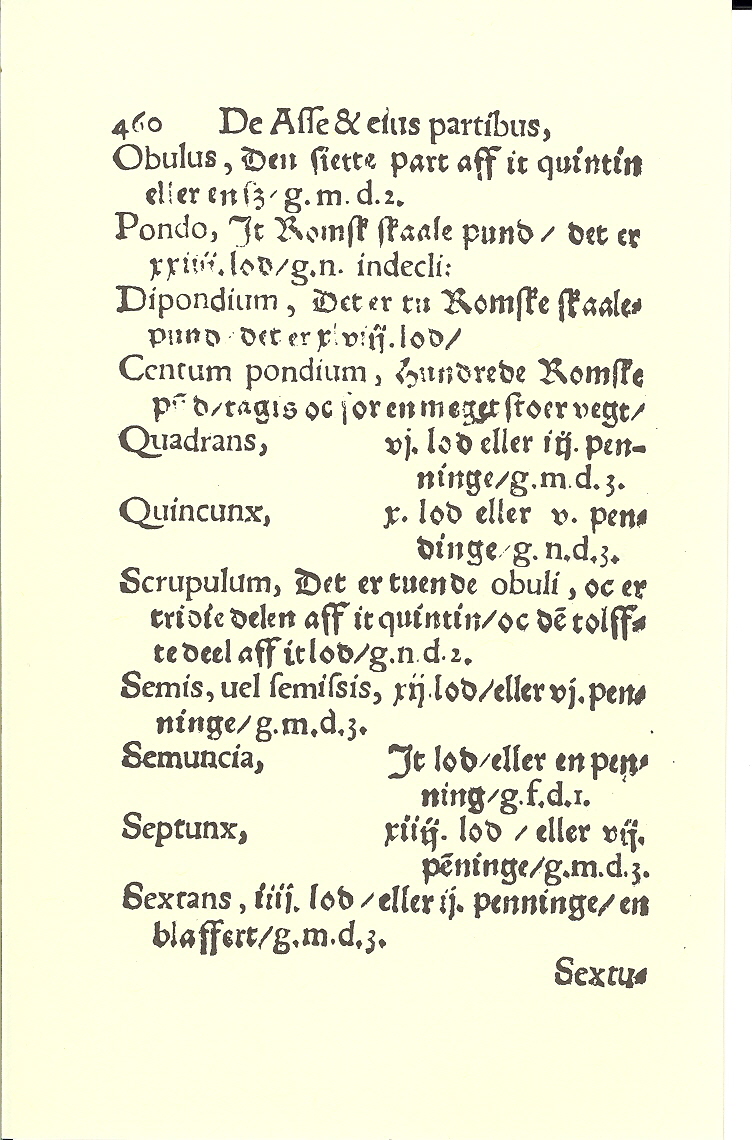 460 De Asse & eius partibus,
Obulus, Den siette part aff it quintin
eller en sz/ g. m. d. 2.
Pondo, It Romsk skaale pund / det er
xxiiij. lod/g. n. indecli:
Dipondium, Det er tu Romske skaale⸗
pund det er xlviij. lod/
Centum pondium, Hundrede Romske
pūd/tagis oc for en meget stoer vegt/
Quadrans, vj. lod eller iij. pen-
ninge/g. m. d. 3.
Quincunx, x. lod eller v. pen⸗
dinge/g. n. d. 3.
Scrupulum, Det er tuende obuli, oc er
tridie delen aff it quintin/oc dē tolff⸗
te deel aff it lod/g. n. d. 2.
Semis, uel semissis, xij. lod/eller vj. pen⸗
ninge/g. m. d. 3.
Semuncia, It lod/eller en pen⸗
ning/g. f. d. 1.
Septunx, xiiij. lod / eller vij.
pēninge/g. m. d. 3.
Sextans, iiij. lod / eller ij. penninge/ en
blaffert/g. m. d. 3.
Sextu⸗